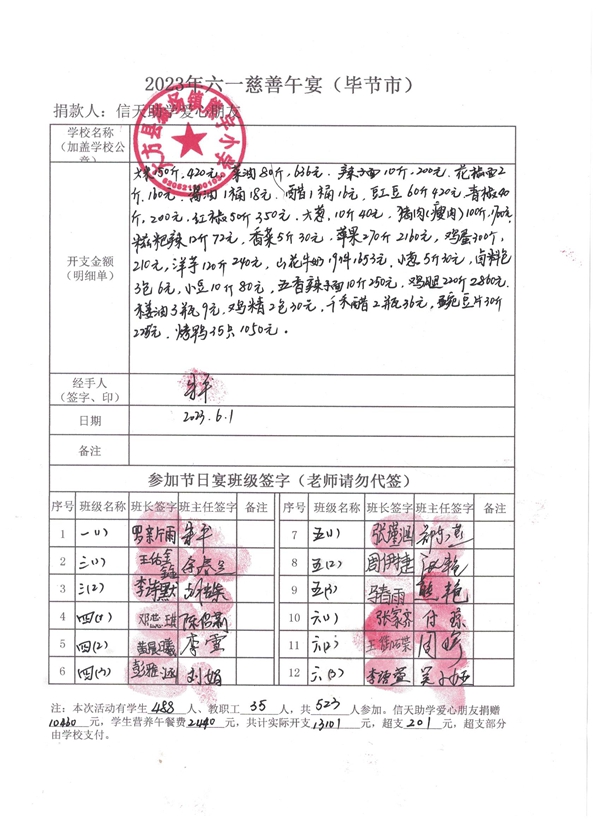 2023年六一慈善午宴（毕节市）
捐款人：信天助学爱心朋友
学校名称
（加盖学校公章）
开支金额
（明细单）
大米150斤,420元,菜油80斤,636元.辣子面10斤,200元.花椒面2
斤,160元.酱油1桶18元.醋1桶16元,豇豆60斤420元.青椒40
斤,200元.红椒50斤350元.大葱,10斤40元.猪肉(瘦肉)100斤,1700元.
糍粑辣12斤72元,香菜5斤30元,苹果270斤2160元,鸡蛋300个,
210元,洋芋120斤240元,山花牛奶19件1653元.小葱5斤30元,卤料包
3包6元,小豆10斤80元,五香辣子面10斤250元,鸡腿220斤2860元.
木姜油3瓶9元,鸡精2包30元,千禾醋2瓶36元,豌豆片30斤
225元,烤鸭35只1050元。
经手人
（签字、印）
日期 2023.6.1
备注
参加节日宴班级签字（老师请勿代签）
序号 班级名称 班长签字 班主任签字 备注 序号 班级名称 班长签字 班主任签字 备注
1 一(1) 7 五(1) 张瑾涵
2 三(1) 8 五(2)
3 三(2) 李诗默 9 五(3) 马春雨 艳
4 四(1) 10 六(1) 张家齐 付琼
5 四(2) 黄晨曦 李雪 11 六(2) 周珍
6 四(3) 彭雅涵 刘娟 12 六(3)
注：本次活动有学生488人、教职工35人，共523人参加。信天助学爱心朋友捐赠
10460元，学生营养午餐费2440元，共计实际开支13101元，超支201元，超支部分
由学校支付。